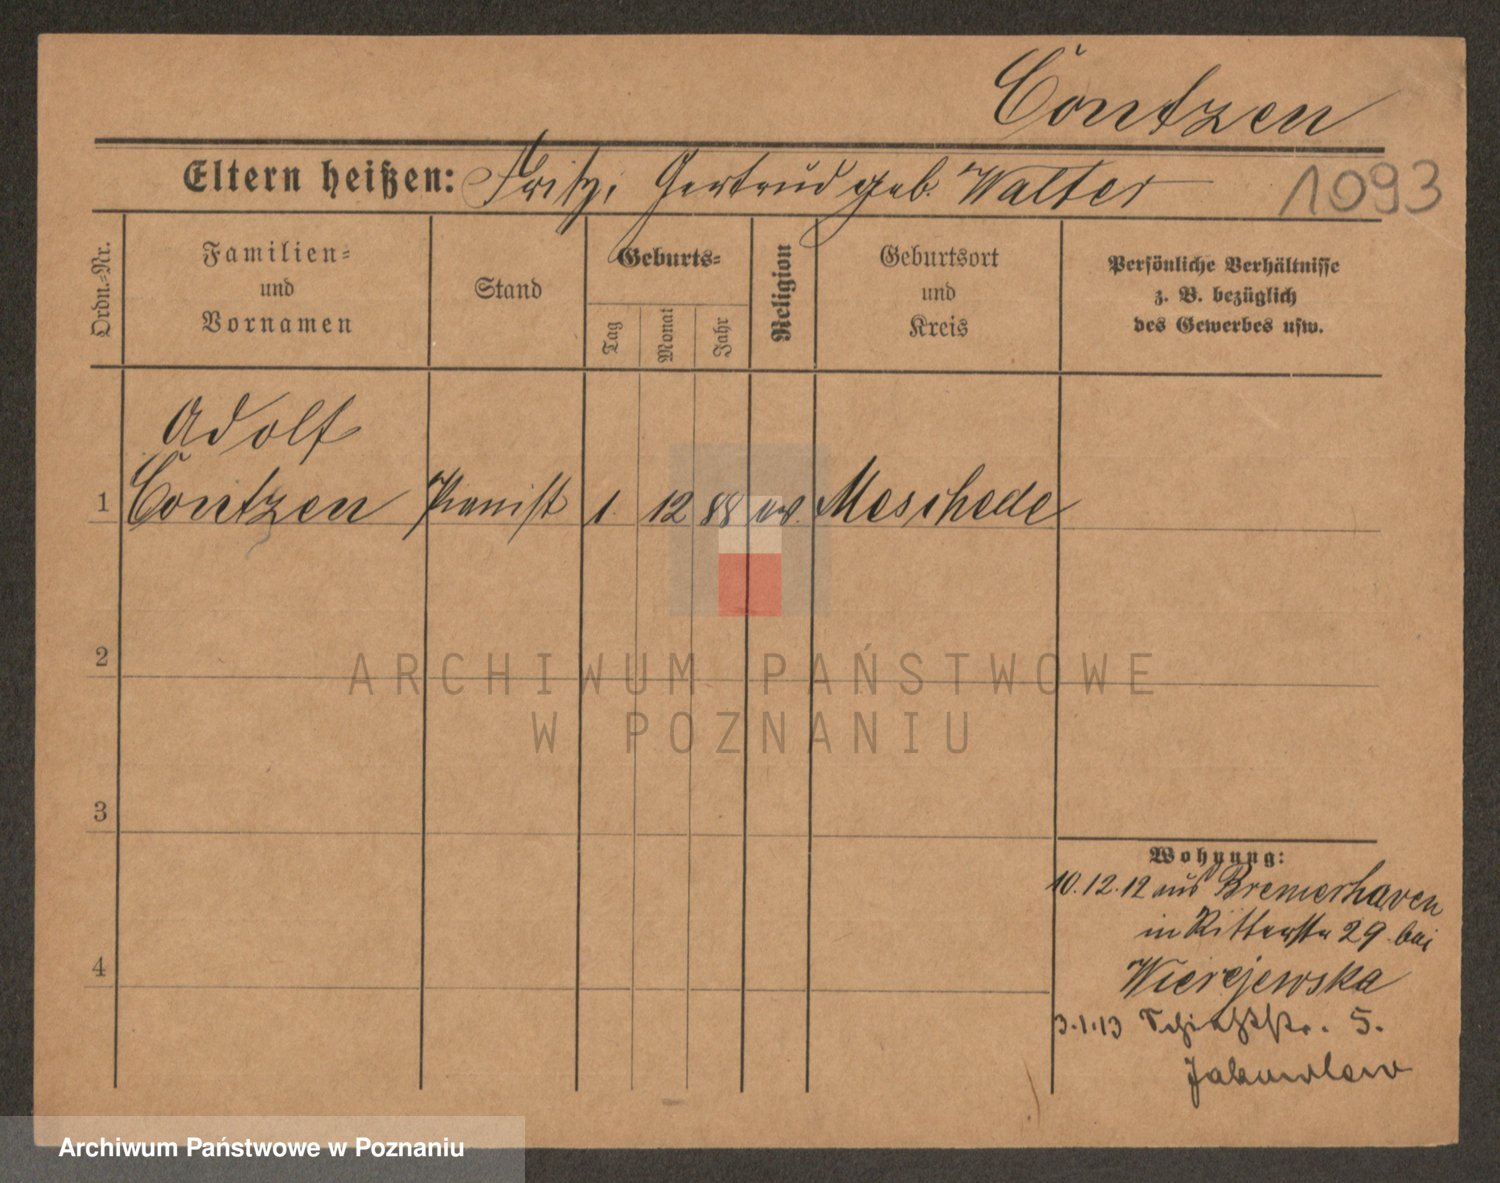 Contzen
Eltern heißen: Fritz, Gertrud geb. Walter
1093
Ordn.-Nr.
Familien-
und
Vornamen
Stand
Geburts-
Tag
Monat
Jahr
Religion
Geburtsort
und
Kreis
Persönliche Verhältnisse
z. B. bezüglich
des Gewerbes usw.
Adolf
1 Contzen Pianist 1. 12 88 ev. Meschede
2
3
4
ARCHIWUM PAŃSTWOWE
W POZNANIU
Wohnung:
10.12.12 aus Bremerhaven
in Ritterstr 29 bei
Wierejewska
3.1.13 5.
Archiwum Państwowe w Poznaniu